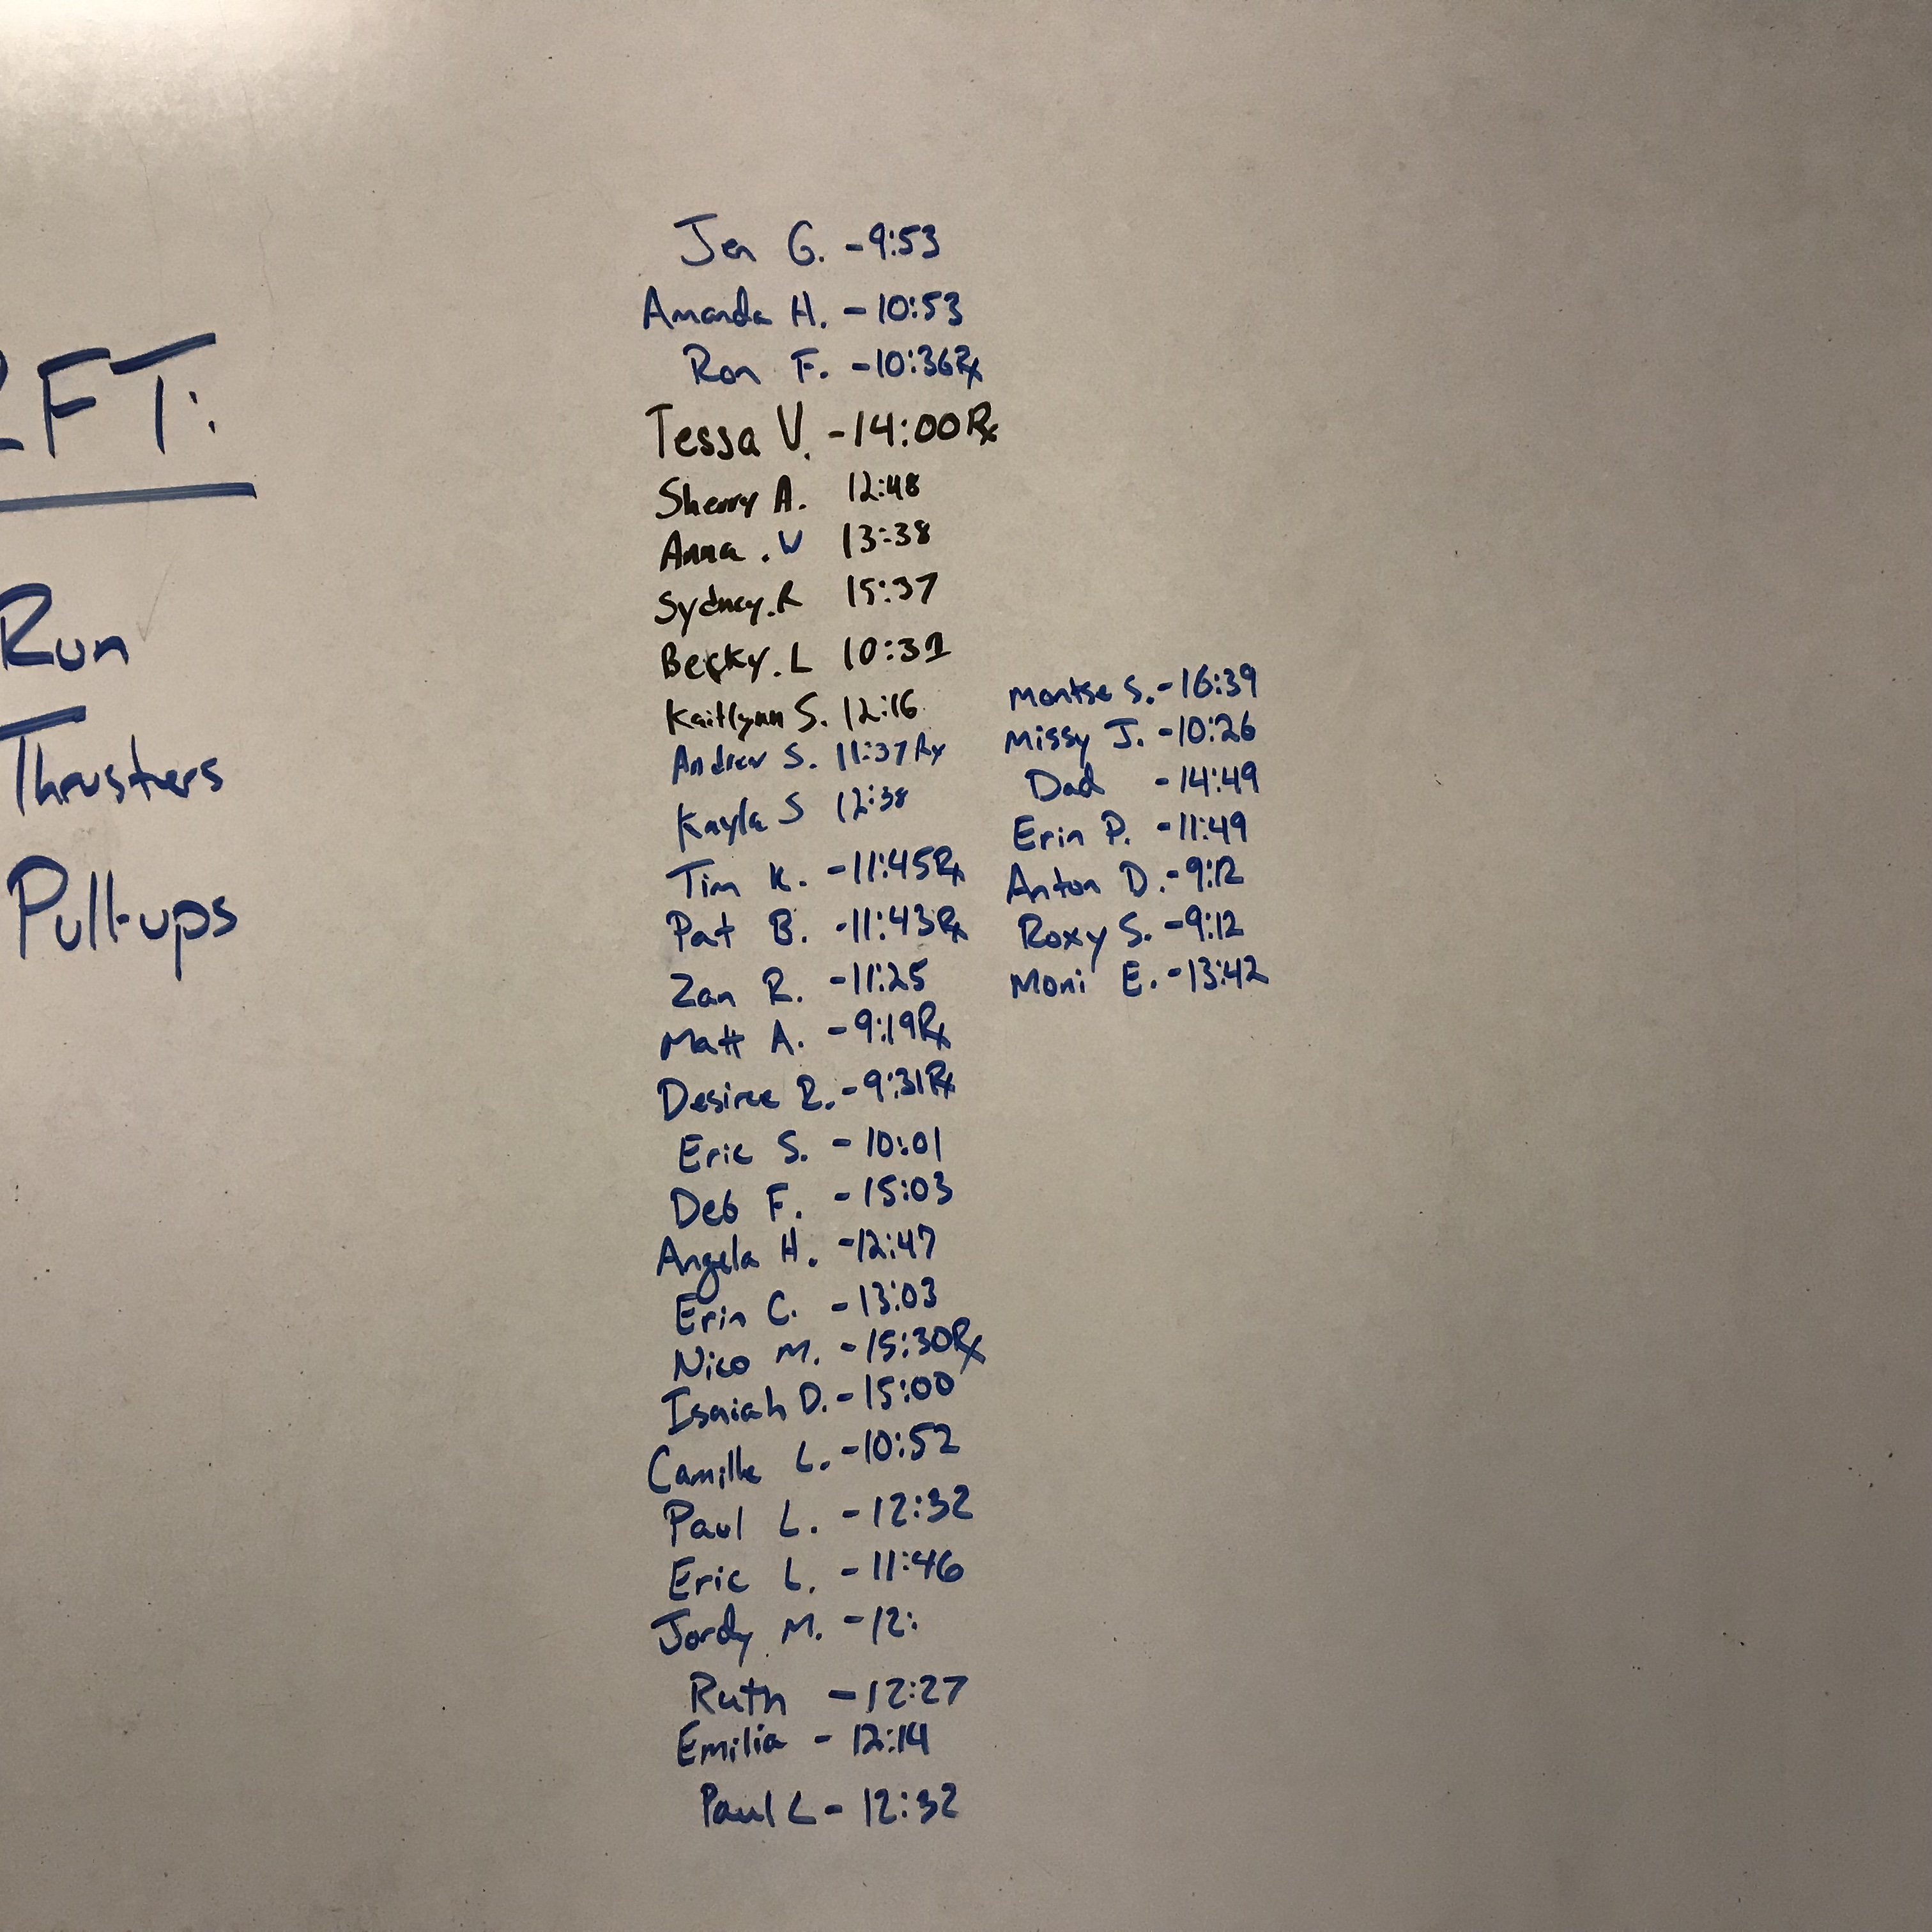 RFT:
Run
Thrusters
Pull-ups
Jen G. - 9:53
Amanda H. - 10:53
Ron F. - 10:36 Rx
Tessa V. - 14:00 Rx
Sherry A. 12:48
Anna . W 13:38
Sydney . R 15:37
Becky . L 10:31
Kaitlynn S. 12:16
Andrew S. 11:37 Rx
Kayla S 12:38
Tim K. - 11:45 Rx
Pat B. - 11:43 Rx
Zan R. - 11:25
Matt A. - 9:19 Rx
Desiree R. - 9:31 Rx
Eric S. - 10:01
Deb F. - 15:03
Angela H. - 12:47
Erin C. - 13:03
Nico M. - 15:30 Rx
Isaiah D. - 15:00
Camille L. - 10:52
Paul L. - 12:32
Eric L. - 11:46
Jordy M. - 12:
Ruth - 12:27
Emilia - 12:14
Paul L - 12:32
Montse S. - 16:39
Missy J. - 10:26
Dad - 14:49
Erin P. - 11:49
Anton D. - 9:12
Roxy S. - 9:12
Moni E. - 13:42